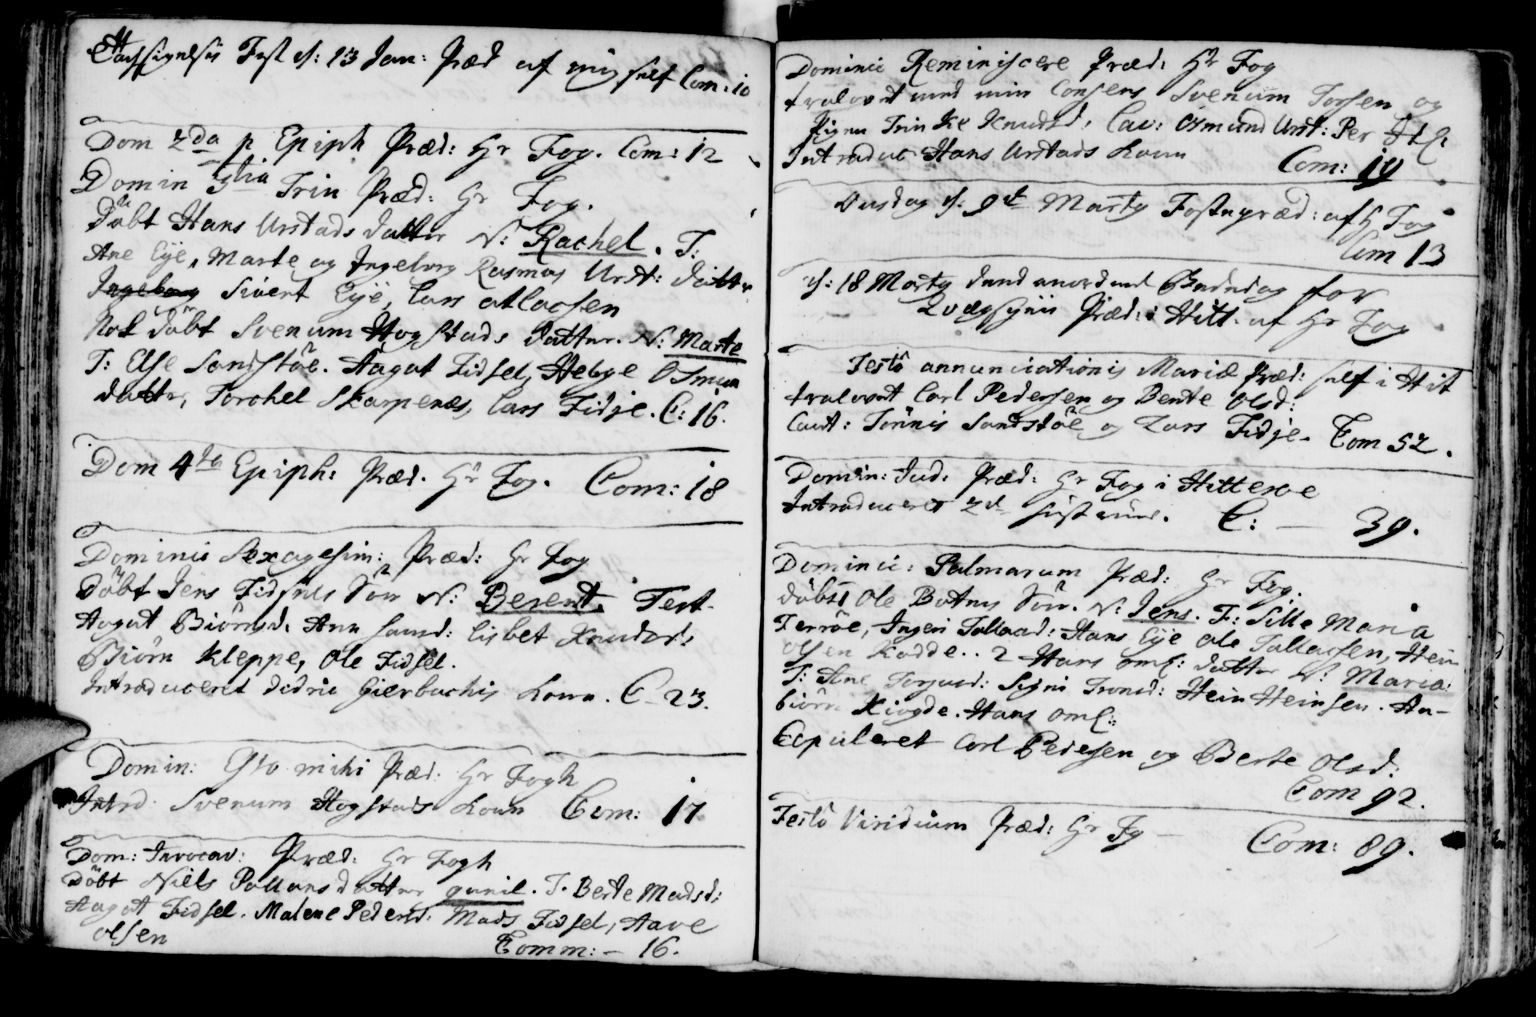 Tachsigelsis Fest d: 13 Jan: Præd af mig self Com: 10
Dom 2da p Epiph Præd: Hr Fog. Com: 12
Domin 3tia Trin Præd: Hr Fog.
Döbt Hans Urstads datter N: Rachel. T:
Ane Eÿe, Marte og Ingeborg Rasmus Urst: datter
Ingeborg Sivert Eÿe, Lars atlacsen
Nok döbt Svenum Hogstads datter. N: Marte
T: Else Sandstöe. Aagot Fidsel, Helge Osmun
datter, Torchel Skarpenes, Lars Fidje. C: 16.
Dom 4ta Epiph: Præd. Hr Fog. Com: 18
Dominic Sexagesim: Præd: Hr Fog
Döbt Jens Fidsels Sön N: Berent. Test.
Aagot Biörnsd. Ann Lausd: Lisbet Knudsd:
Biörn Kleppe, Ole Fidsel.
Introduceret Didric Gierbachis Kone. C - 23.
Domin: Esto mihi Præd. Hr Fogh
Introd: Svenum Hogstads Kone Com: 17
Dom: Invocav: Præd: Hr Fogh
Döbt Niels Pollans datter gunil. T. Berte Madsd:
Aagot Fidsel. Malene Pedersd. Mads Fidsel, Aave
olsen Comm: - 16.
Dominic Reminiscere Præd: Hr Fog
trolovet med min Consens Svenum Torsen og
Pigen Trinke Knudsd, Cau: Osmund Urst: Per
Introduc Hans Urstads Kone Com: 19
Onsdag d: 9de Marty Fastepræd: af H Fog
Com 13
d: 18 Marty dend anordned Bededag for
Qvægsygen Præd: i Hitt. af Hr Fog
Festô annunciationis Mariæ Præd: self i Hit
trolovet Carl Pedersen og Bente Olsd:
Caut: Tönnis Sandstöe og Lars Fidje. Com 52.
Domin: Jud. Præd: Hr Fog i Hitteroe
Introduceret 2de hustruer. C: — 39.
Dominic: Palmarum Præd: Hr Fog.
döbt Ole Botnes Sön. N: Jens. F: Sille Maria
Terröe, Ingeri Tallacd: Hans Eÿe Ole Tallacsen, Hein
olsen Rodde.. 2 Hans oml: datter N: Maria:
T: Ane Torjusd: Signi Tronsd: Hein Heinsen. An-
biörn Kiogde. Hans oml:
Copuleret Carl Pedersen og Berte Olsd:
Com 92.
Festô Viridium Præd: Hr Fog — Com: 89.